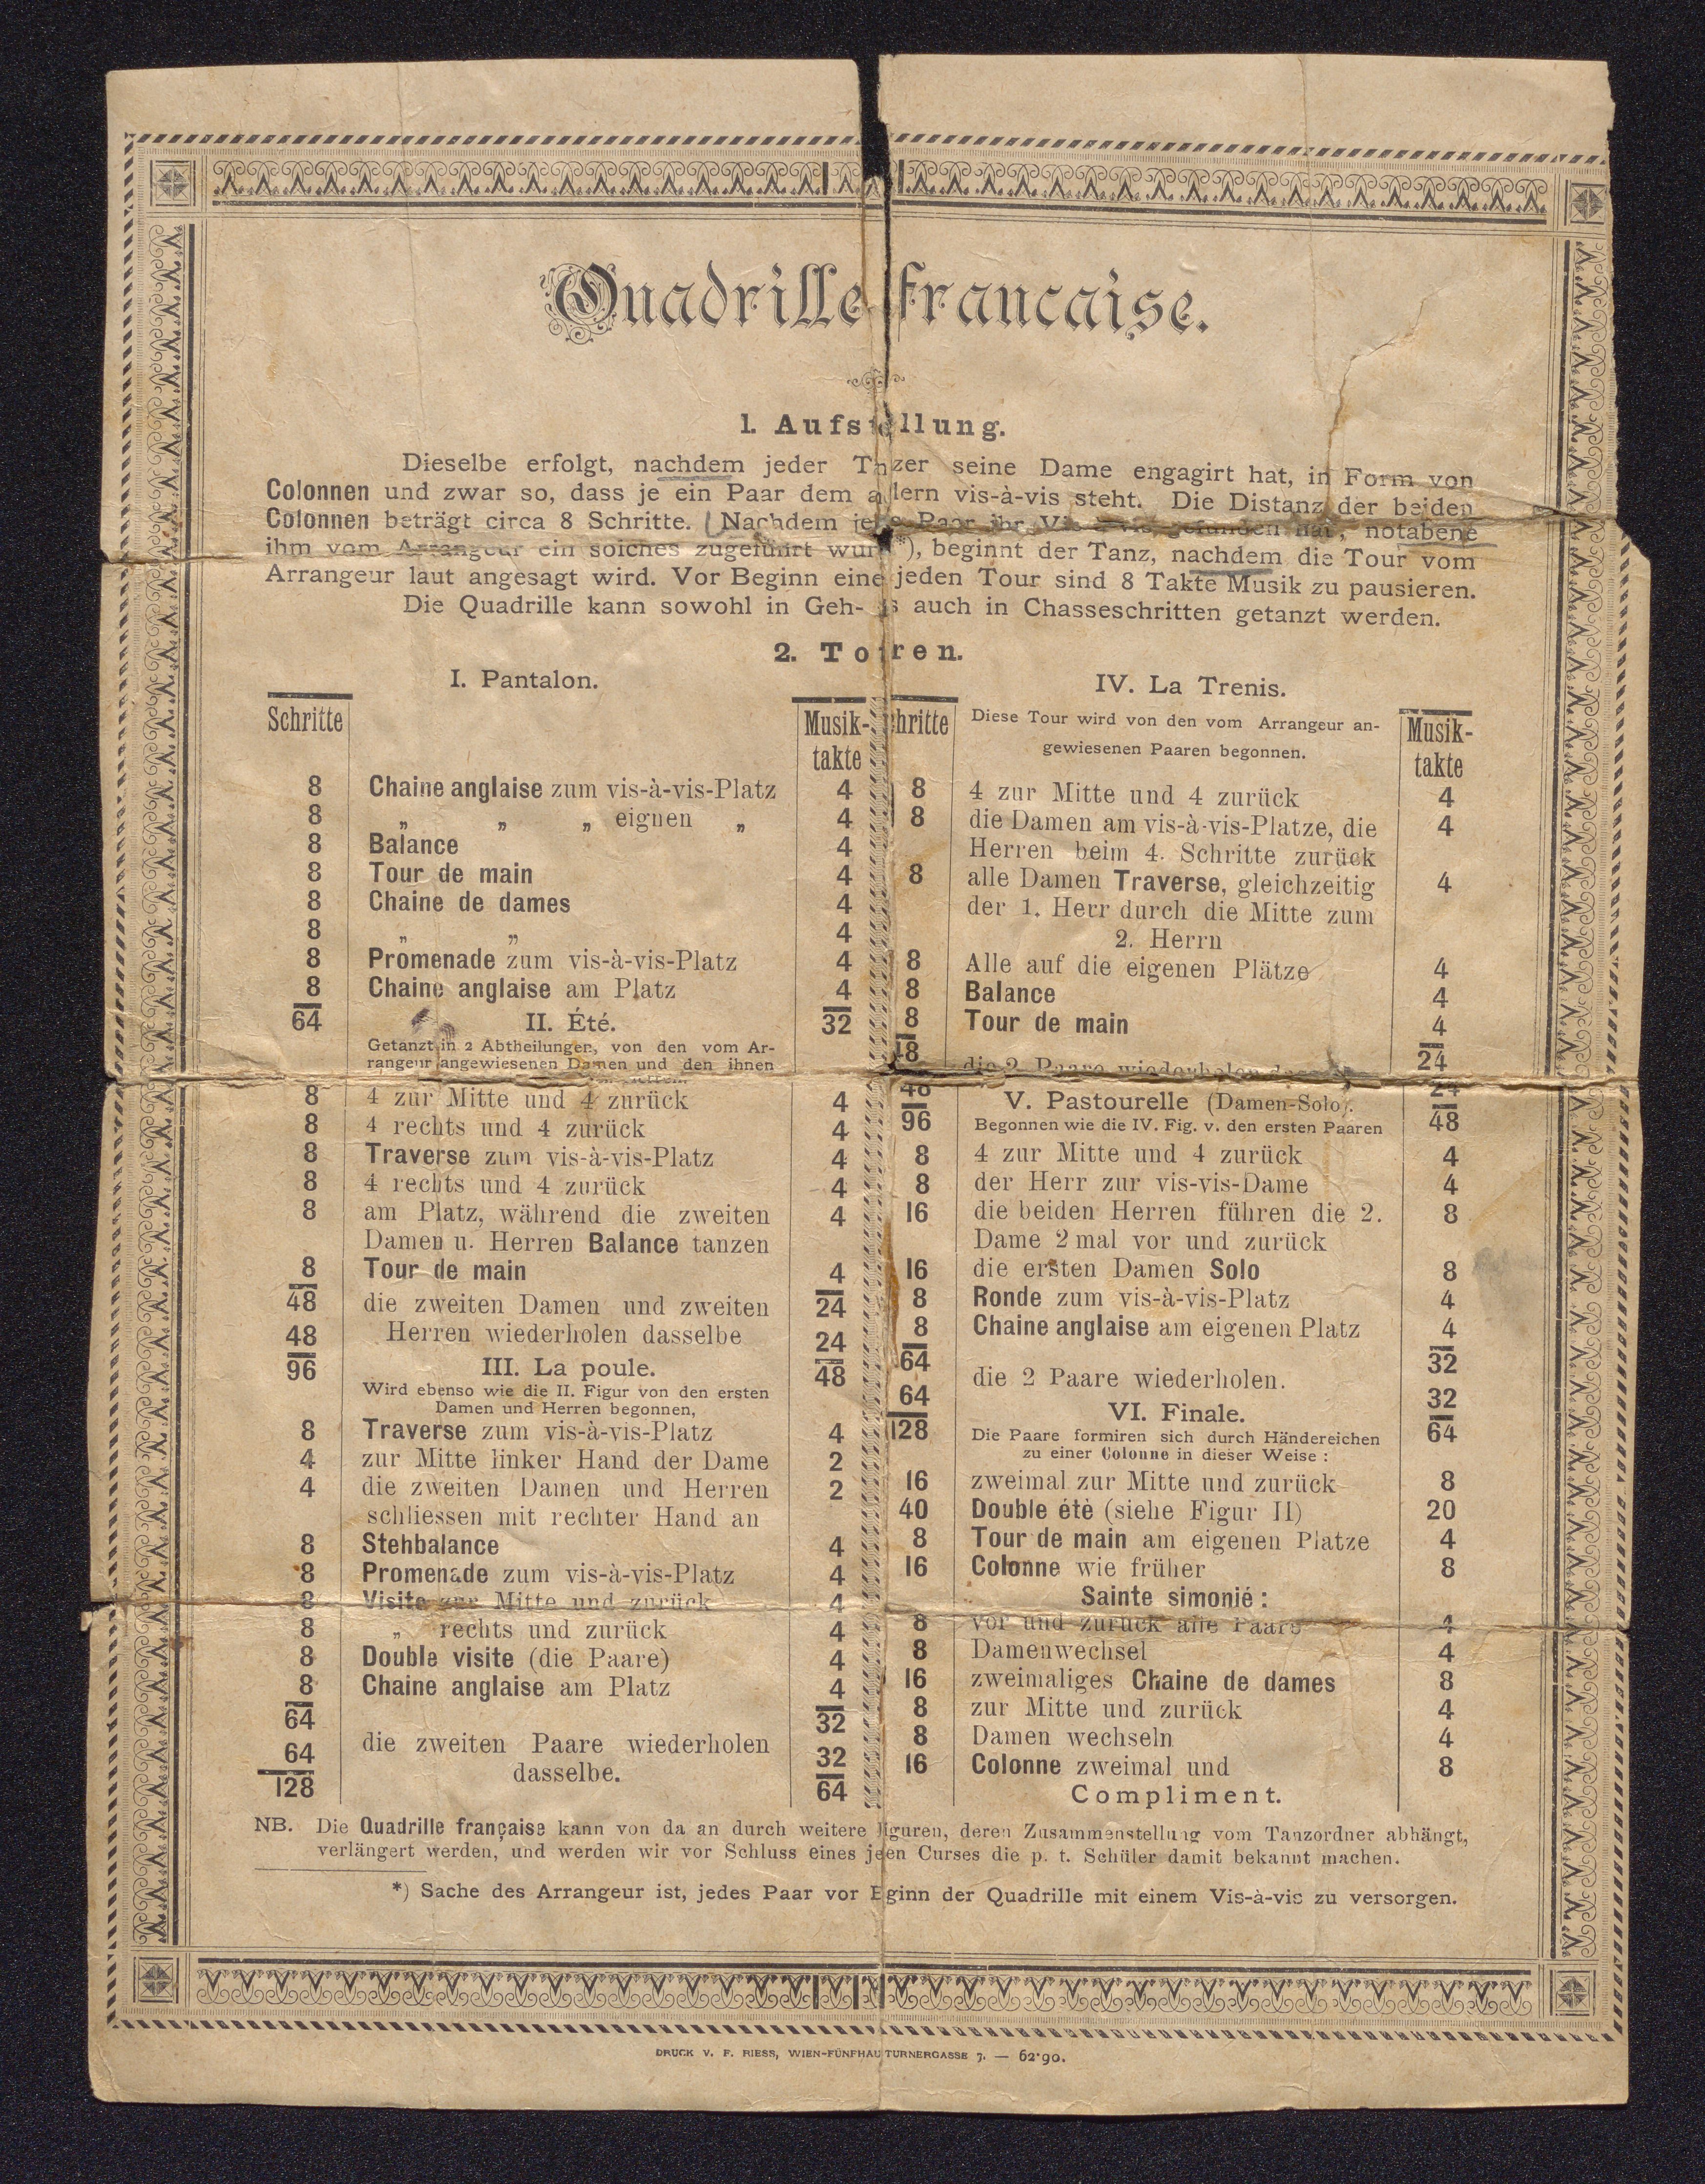 Quadrille française.
1. Aufstellung.
Dieselbe erfolgt, nachdem jeder Tänzer seine Dame engagirt hat, in Form von
Colonnen und zwar so, dass je ein Paar dem andern vis-à-vis steht. Die Distanz der beiden
Colonnen beträgt circa 8 Schritte. (Nachdem jedes Paar ihr Vis-à-vis gefunden hat, notabene
ihm vom Arrangeur ein solches zugeführt wurde*), beginnt der Tanz, nachdem die Tour vom
Arrangeur laut angesagt wird. Vor Beginn einer jeden Tour sind 8 Takte Musik zu pausieren.
Die Quadrille kann sowohl in Geh- als auch in Chasseschritten getanzt werden.
2. Touren.
I. Pantalon.
Schritte Musik-
takte
8 Chaine anglaise zum vis-à-vis-Platz 4
8 „ „ „ eignen „ 4
8 Balance 4
8 Tour de main 4
8 Chaine de dames 4
8 „ „ 4
8 Promenade zum vis-à-vis-Platz 4
8 Chaine anglaise am Platz 4
64 II. Été. 32
Getanzt in 2 Abtheilungen, von den vom Ar-
rangeur angewiesenen Damen und den ihnen
8 4 zur Mitte und 4 zurück 4
8 4 rechts und 4 zurück 4
8 Traverse zum vis-à-vis-Platz 4
8 4 rechts und 4 zurück 4
8 am Platz, während die zweiten 4
Damen u. Herren Balance tanzen
8 Tour de main 4
48 die zweiten Damen und zweiten 24
48 Herren wiederholen dasselbe 24
96 III. La poule. 48
Wird ebenso wie die II. Figur von den ersten
Damen und Herren begonnen,
8 Traverse zum vis-à-vis-Platz 4
4 zur Mitte linker Hand der Dame 2
4 die zweiten Damen und Herren 2
schliessen mit rechter Hand an
8 Stehbalance 4
8 Promenade zum vis-à-vis-Platz 4
8 Visite zur Mitte und zurück 4
8 „ rechts und zurück 4
8 Double visite (die Paare) 4
8 Chaine anglaise am Platz 4
64 32
64 die zweiten Paare wiederholen 32
128 dasselbe. 64
IV. La Trenis.
Schritte Diese Tour wird von den vom Arrangeur an- Musik-
gewiesenen Paaren begonnen. takte
8 4 zur Mitte und 4 zurück 4
8 die Damen am vis-à-vis-Platze, die 4
Herren beim 4. Schritte zurück
8 alle Damen Traverse, gleichzeitig 4
der 1. Herr durch die Mitte zum
2. Herrn
8 Alle auf die eigenen Plätze 4
8 Balance 4
8 Tour de main 4
48 24
die 2 Paare wiederholen
48 24
96 V. Pastourelle (Damen-Solo). 48
Begonnen wie die IV. Fig. v. den ersten Paaren
8 4 zur Mitte und 4 zurück 4
8 der Herr zur vis-vis-Dame 4
16 die beiden Herren führen die 2. 8
Dame 2 mal vor und zurück
16 die ersten Damen Solo 8
8 Ronde zum vis-à-vis-Platz 4
8 Chaine anglaise am eigenen Platz 4
64 32
die 2 Paare wiederholen.
64 32
128 VI. Finale. 64
Die Paare formiren sich durch Händereichen
zu einer Colonne in dieser Weise :
16 zweimal zur Mitte und zurück 8
40 Double étè (siehe Figur II) 20
8 Tour de main am eigenen Platze 4
16 Colonne wie früher 8
Sainte simonié :
8 vor und zurück alle Paare 4
8 Damenwechsel 4
16 zweimaliges Chaine de dames 8
8 zur Mitte und zurück 4
8 Damen wechseln 4
16 Colonne zweimal und 8
Compliment.
NB. Die Quadrille française kann von da an durch weitere Figuren, deren Zusammenstellung vom Tanzordner abhängt,
verlängert werden, und werden wir vor Schluss eines jeden Curses die p. t. Schüler damit bekannt machen.
*) Sache des Arrangeur ist, jedes Paar vor Beginn der Quadrille mit einem Vis-à-vis zu versorgen.
DRUCK V. F. RIESS, WIEN-FÜNFHAUS TURNERGASSE 7. — 62·90.